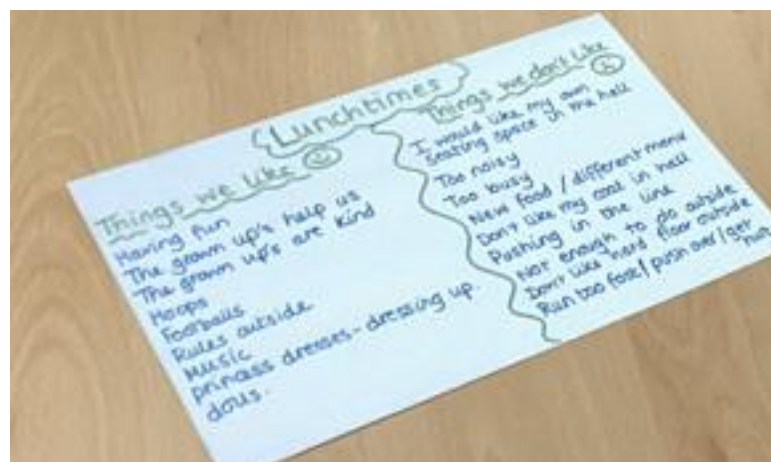 Lunchtimes
Things we like
Having fun
The grown up's help us
The grown up's are kind
Hoops
Footballs
Rules outside
Music
princess dresses - dressing up.
dolls.
Things we don't like
I would like my own
seating space in the hall
Too noisy
Too busy
New food / different menu
Don't like my coat in hall
Pushing in the line
Not enough to do outside
Don't like hard floor outside
Run too fast / push over / get
hurt